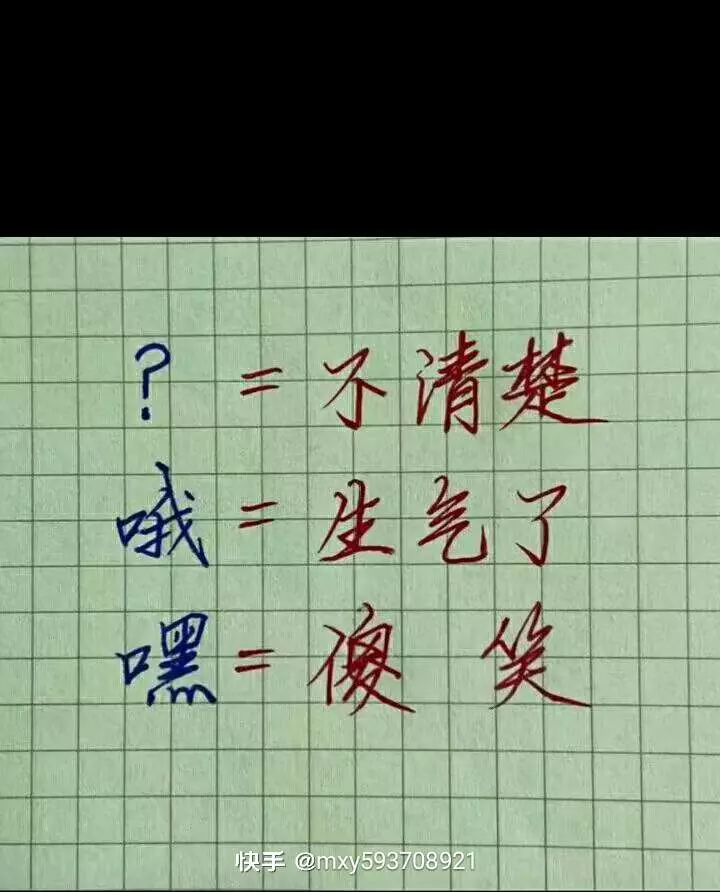 ？ = 不清楚
哦 = 生气了
嘿 = 傻笑
快手 @mxy593708921